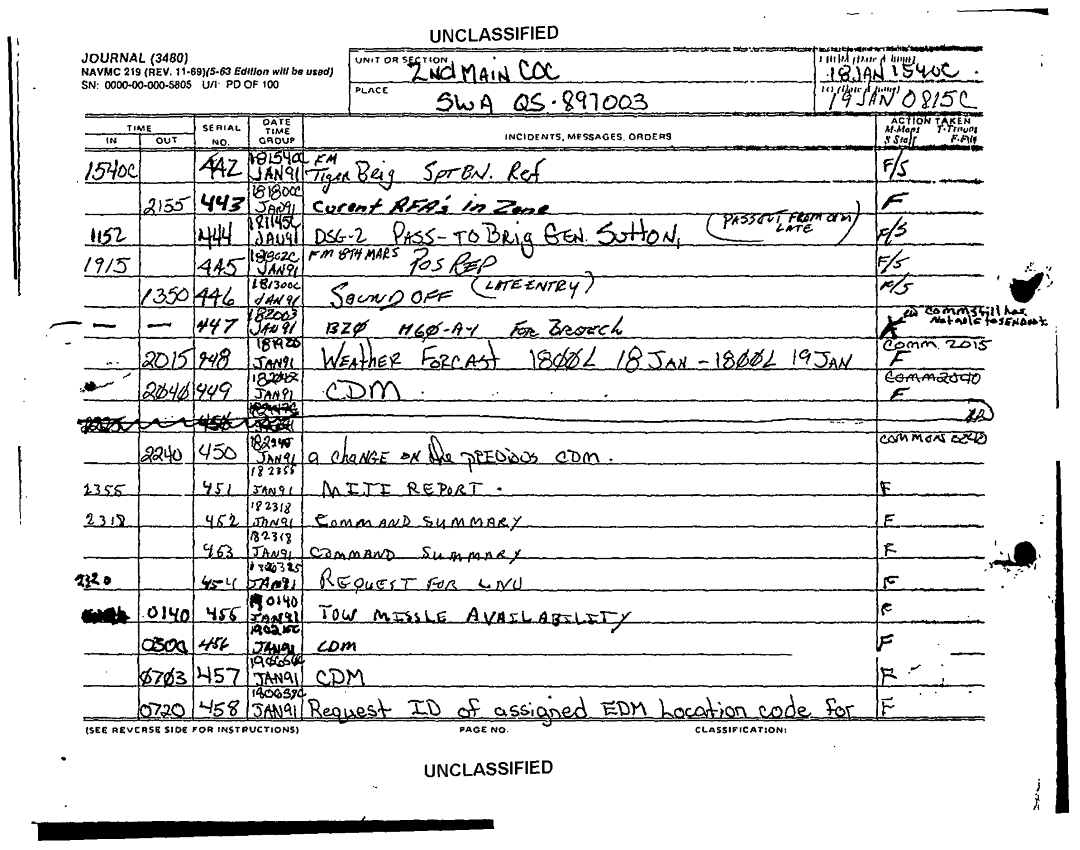 UNCLASSIFIED
JOURNAL (3480)
NAVMC 219 (REV. 11-69)(5-63 Edition will be used)
SN: 0000-00-000-5805 U/I: PD OF 100
UNIT OR SECTION
2nd MAIN COC
18 JAN 1540C
PLACE
SWA QS-897003
19 JAN 0815C
TIME
IN OUT
SERIAL NO.
DATE TIME GROUP
INCIDENTS, MESSAGES, ORDERS
ACTION TAKEN
M-Maps T-Troops
S-Staff F-File
1540C 442 181540C JAN91 FM Tiger Brig SPTBN. Ref F/S
2155 443 181800C JAN91 Curent RFA's in Zone F
1152 444 181145C JAN91 DSG-2 PASS-TO BRIG GEN. SUTTON, (PASSED FROM LATE) F/S
1915 445 JAN91 FM 8TH MARS POS REP F/S
1350 446 181300C JAN91 SOUND OFF (LATE ENTRY) F/S
— — 447 182003 JAN91 BZ0 M60-A4 FOR Comm still has Not able to send out.
2015 448 181920 JAN91 WEATHER FORCAST 1800L 18 JAN - 1800L 19 JAN Comm 2015 F
2040 449 JAN91 CDM Comm 2040 F
2240 450 182240 JAN91 a change on the PREDIOUS CDM. COMM 2240
2355 451 182355 JAN91 MIJI REPORT. F
2318 452 182318 JAN91 COMMAND SUMMARY F
453 182318 JAN91 COMMAND SUMMARY F
2320 454 JAN91 REQUEST FOR F
0140 455 190140 JAN91 TOW MISSLE AVAILABILITY F
0300 456 JAN91 CDM F
0703 457 JAN91 CDM F
0720 458 190637C JAN91 Request ID of assigned EDM Location code for F
(SEE REVERSE SIDE FOR INSTRUCTIONS) PAGE NO. CLASSIFICATION:
UNCLASSIFIED